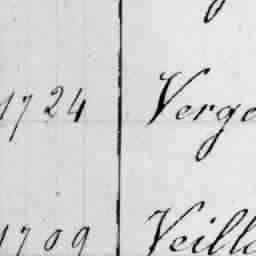 1724 Verge
1709 Veill